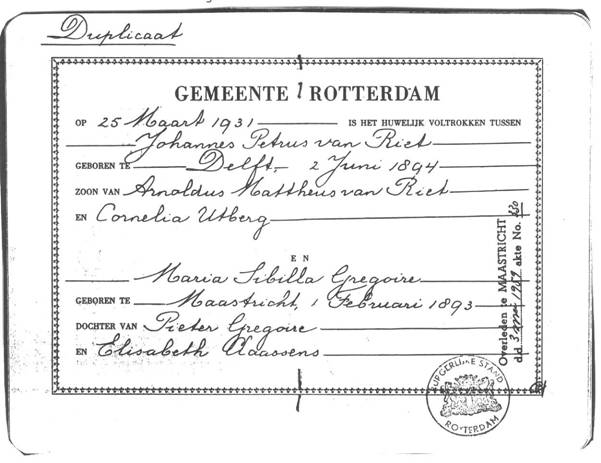 Duplicaat
GEMEENTE ROTTERDAM
OP 25 Maart 1931 IS HET HUWELIJK VOLTROKKEN TUSSEN
Johannes Petrus van Riet
GEBOREN TE Delft, 2 Juni 1894
ZOON VAN Arnoldus Mattheus van Riet
EN Cornelia Utberg
EN
Maria Sibilla Gregoire
GEBOREN TE Maastricht, 1 Februari 1893
DOCHTER VAN Pieter Gregoire
EN Elisabeth Claassens
Overleden te MAASTRICHT
d.d. 3 akte No.
BURGERLIJKE STAND
ROTTERDAM